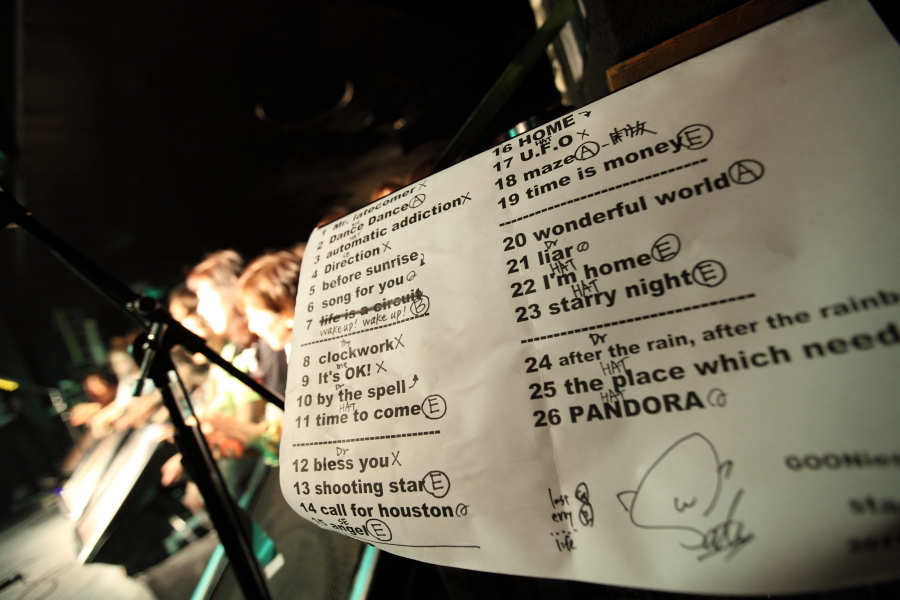 1 Mr. latecomer x
2 Dance Dance Ⓐ
3 automatic addiction x
4 Direction x
5 before sunrise
6 song for you
7 life is a circuit
wake up! wake up!
8 clockwork x
9 It's OK! x
Dr
10 by the spell
HAT
11 time to come Ⓔ
Dr
12 bless you x
13 shooting star Ⓔ
14 call for houston
SE
15 angel Ⓔ
16 HOME
17 U.F.O x
18 maze Ⓐ-
19 time is money Ⓔ
20 wonderful world Ⓐ
Dr
21 liar
HAT
22 I'm home Ⓔ
HAT
23 starry night Ⓔ
Dr
24 after the rain, after the rainb
HAT
25 the place which need
HAT
26 PANDORA
life
GOONies